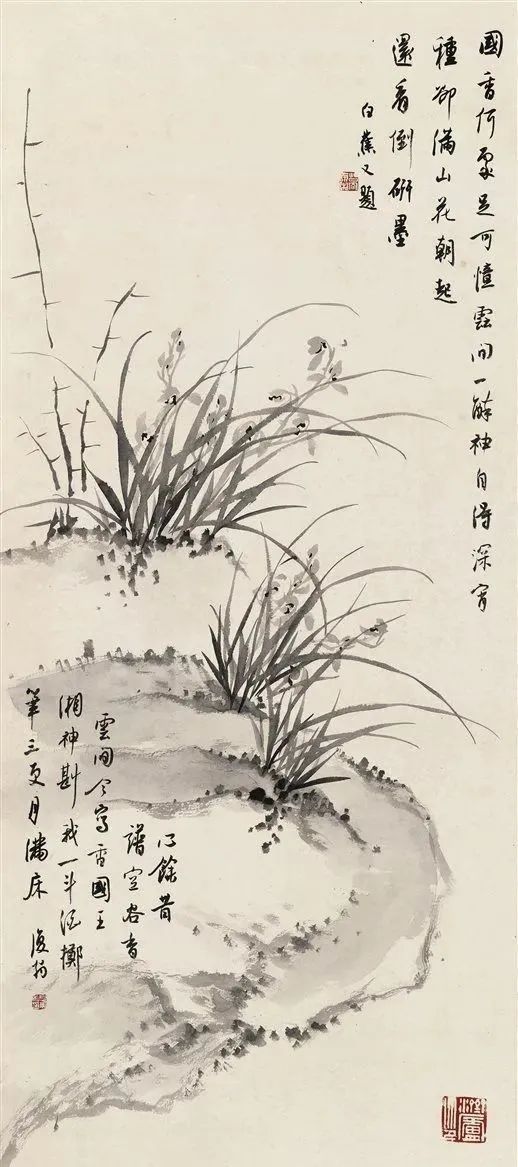 國香何處足可憶雲間一醉神自得深宵
種卻滿山花朝起
還看倒研墨
白蕉又題
心餘昔
譜空谷香
雲間今寫香國王
湘神斟我一斗酒擲
筆三更月滿床 復翁